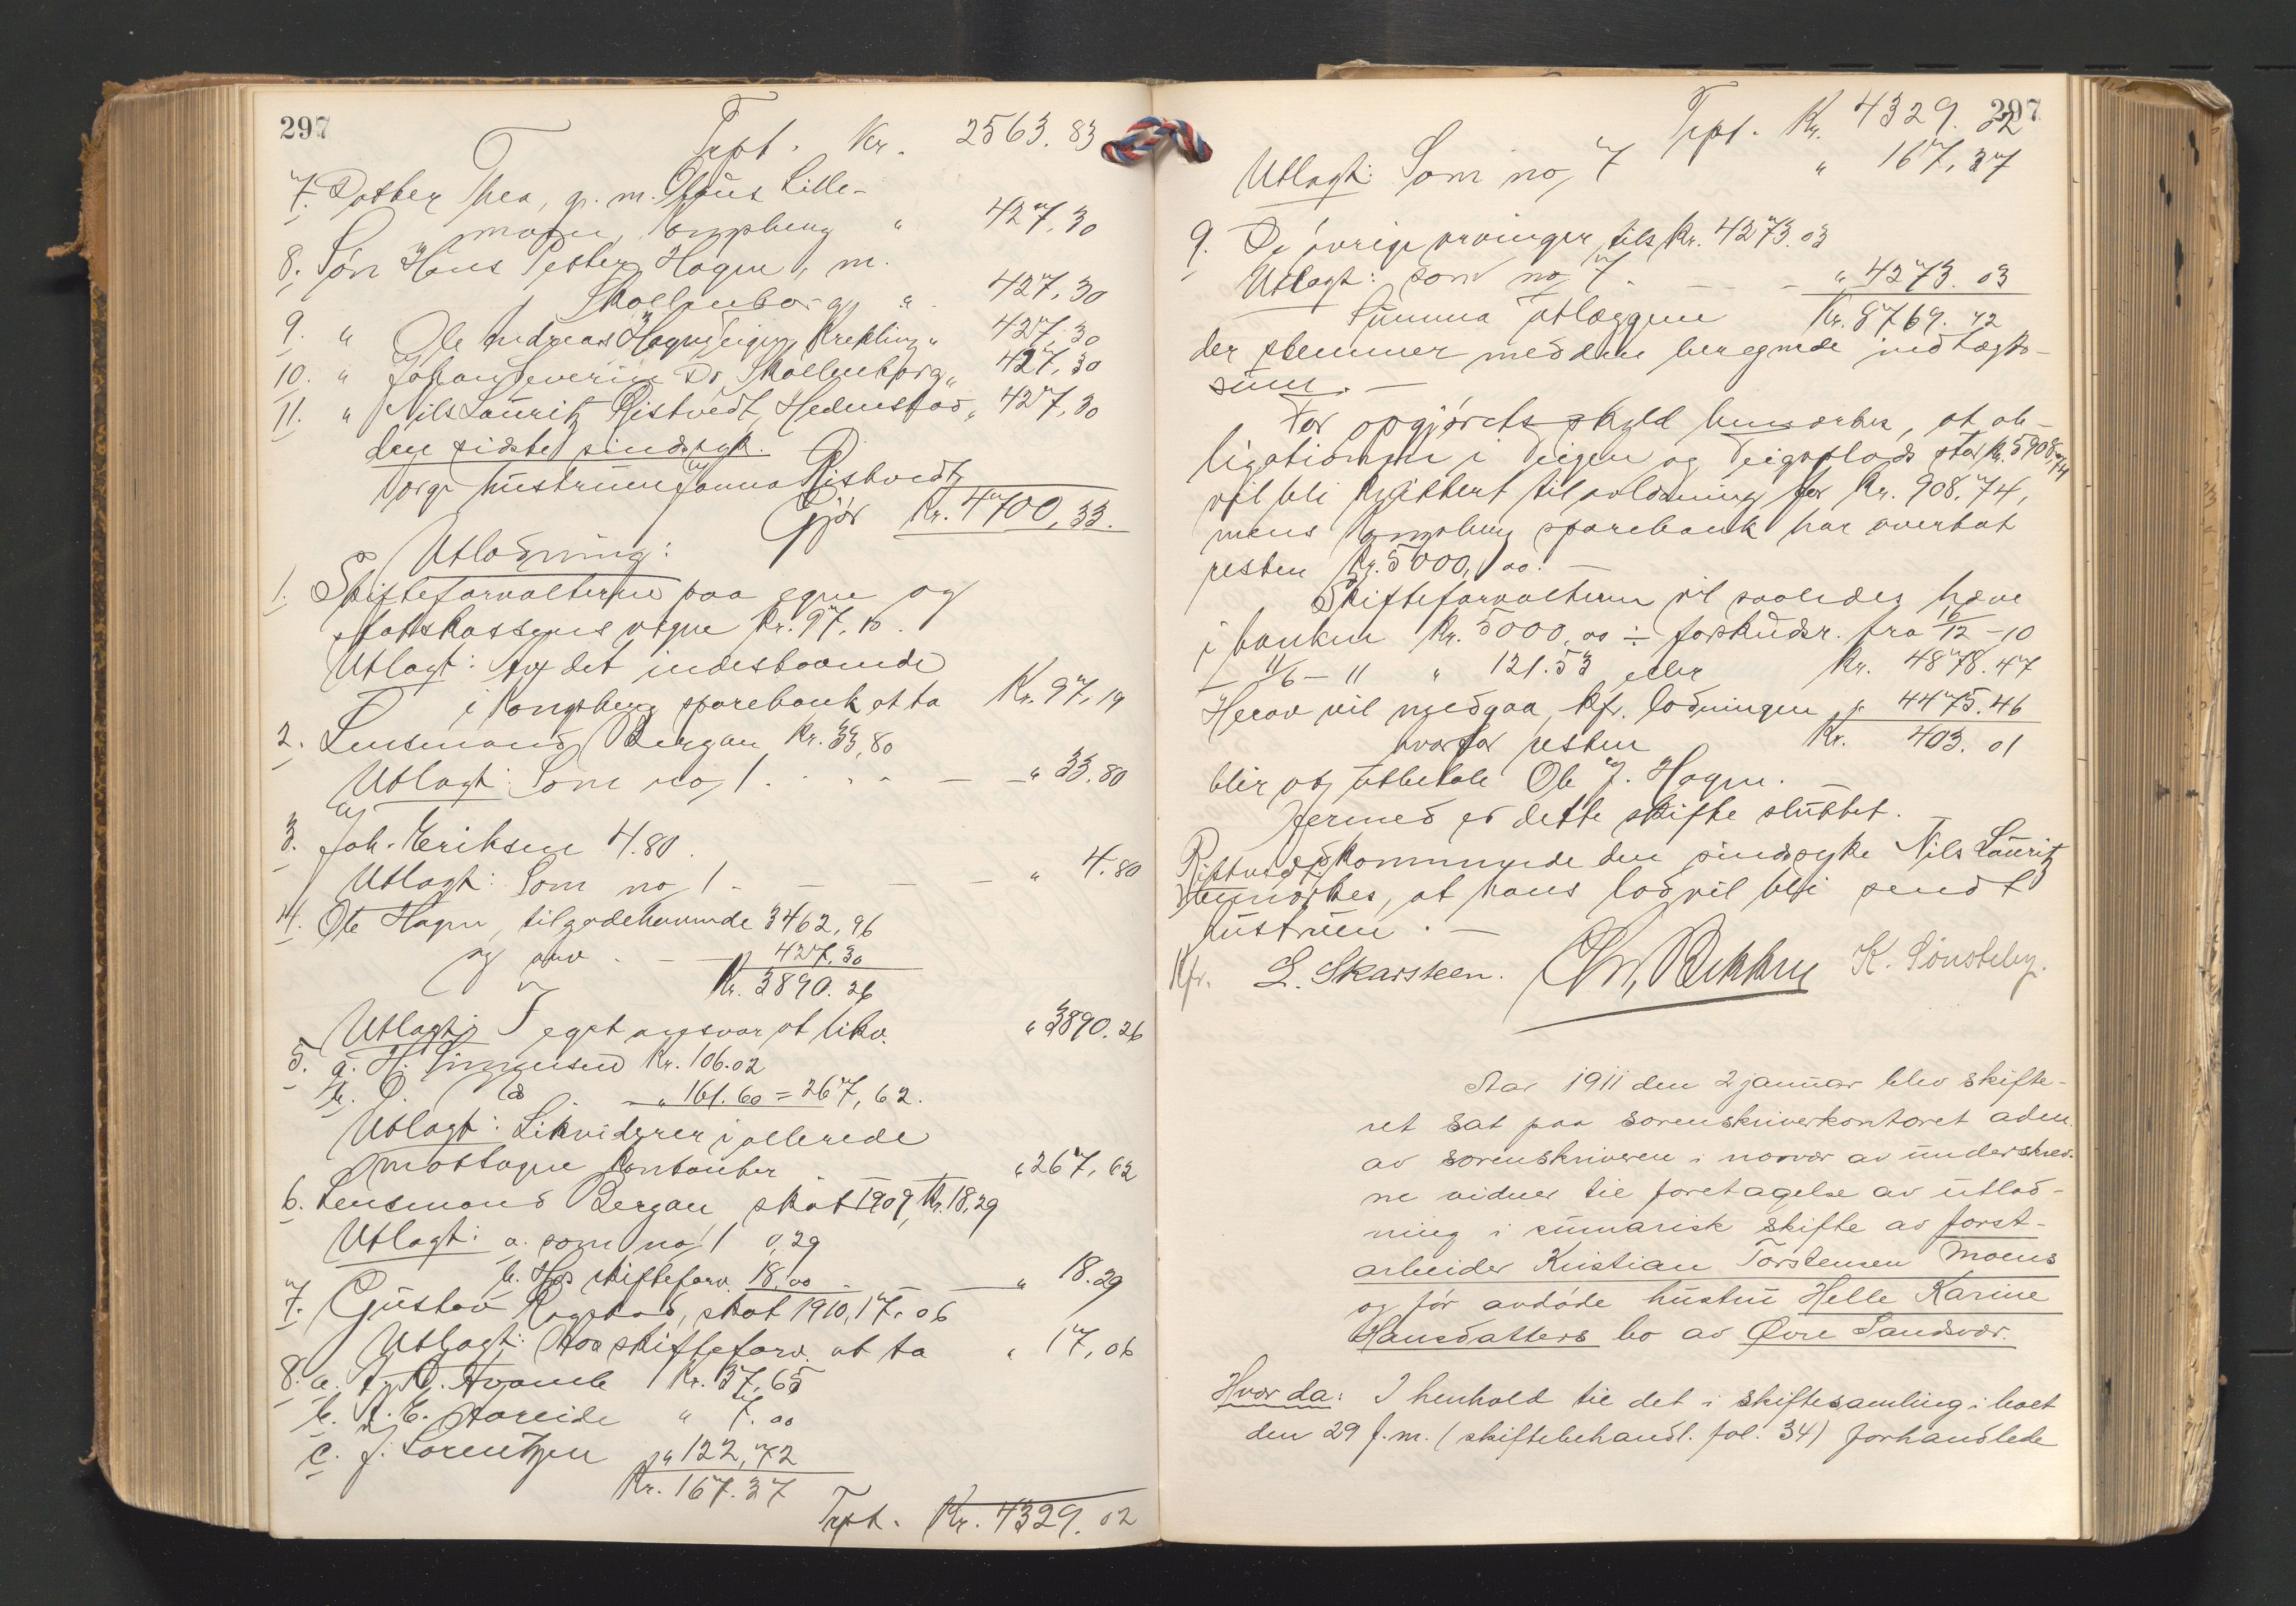 297
Trpt. Kr. 2563.83
7. Datter Thea, g. m. Olaus Lille-
moen, Kongsberg " 427,30
8. Søn Hans Petter Hagen, m.
Skollenborg " 427,30
9. " Ole Andreas Hagen, Teigen, Krekling " 427,30
10. " Johan Severin Do, Skollenborg " 427,30
11. " Nils Lauritz Ristvedt, Hedenstad " 427,30
den sidste sindssyk.
Vorge hustruen Janna Ristvedt
Gjør Kr. 4700,33.
Utlodning:
1. Skifteforvalteren paa egne og
statskassens vegne Kr. 97.19.
Utlagt: Av det indestaaende
i Kongsberg sparebank at ta Kr. 97,19
2. Lensmand Bergan Kr. 33,80
Utlagt: Som no 1 . - - - " 33.80
3. Joh. Eriksen 4.80.
Utlagt: Som no 1 - - - - " 4.80
4. Ole Hagen, tilgodehavende 3462,96
og arv . - - 427,30
Kr. 3890.26
Utlagt: I eget ansvar at likv. " 3890.26
5. a. H. Simensen Kr. 106.02
b. O. Do - " 161.60 = 267,62.
Utlagt: Likviderer i allerede
mottagne kontanter - - " 267,62
6. Lensmand Bergan skat 1909, Kr. 18,29
Utlagt: a. som no 1 0,29
b. Hos skifteforv. 18.00 - - - " 18.29
7. Gustav Kogstad, skat 1910, 17.06
Utlagt: Hos skifteforv. at ta " 17,06
8. a. Kr. 37,65
b. " 7.00
c. J. Lorentzen " 122,72
Kr. 167.37
Trpt. Kr. 4329.02
297
Trpt. Kr. 4329.02
Utlagt: Som no 7 " 167,37
9. De øvrige arvinger tils Kr. 4273.03
Utlagt: som no 7. - - - " 4273.03
Summa utlæggene Kr. 8769.42
der stemmer med den beregnede indtægts-
sum. -
For opgjørets skyld bemerkes, at ob-
ligationen i Teigen og Teigsplads stor Kr. 5908,74
vil bli kvittert til avlæsning for Kr. 908.74,
mens Kongsberg sparebank har overtat
resten Kr. 5000,00. -
Skifteforvalteren vil saaledes hæve
i banken Kr. 5000,00 ÷ forskudsr. fra 16/12 -10
- 11/6 - 11 " 121.53 eller Kr. 4878.47
Herav vil medgaa, kfr. lodningen " 4475.46
hvorfor resten Kr. 403.01
blir at utbetale Ole J. Hagen. -
Hermed er dette skifte sluttet.
Vedkommende den sindssyke Nils Lauritz
Ristvedt bemerkes, at hans lod vil bli sendt
hustruen. -
Kfr. L. Skarsteen. Chr. Bekken K. Sønsteby.
Aar 1911 den 2 januar blev skifte-
ret sat paa sorenskriverkontoret adm.
av sorenskriveren i nærvær av underskrev-
ne vidner til foretagelse av utlod-
ning i summarisk skifte av forst-
arbeider Kristian Torstensen Moens
og før avdøde hustru Helle Karine
Hansdatters bo av Øvre Sandsvær.
Hvor da: I henhold til det i skiftesamling i boet
den 29 f. m. (skiftebehandl. fol. 34) forhandlede